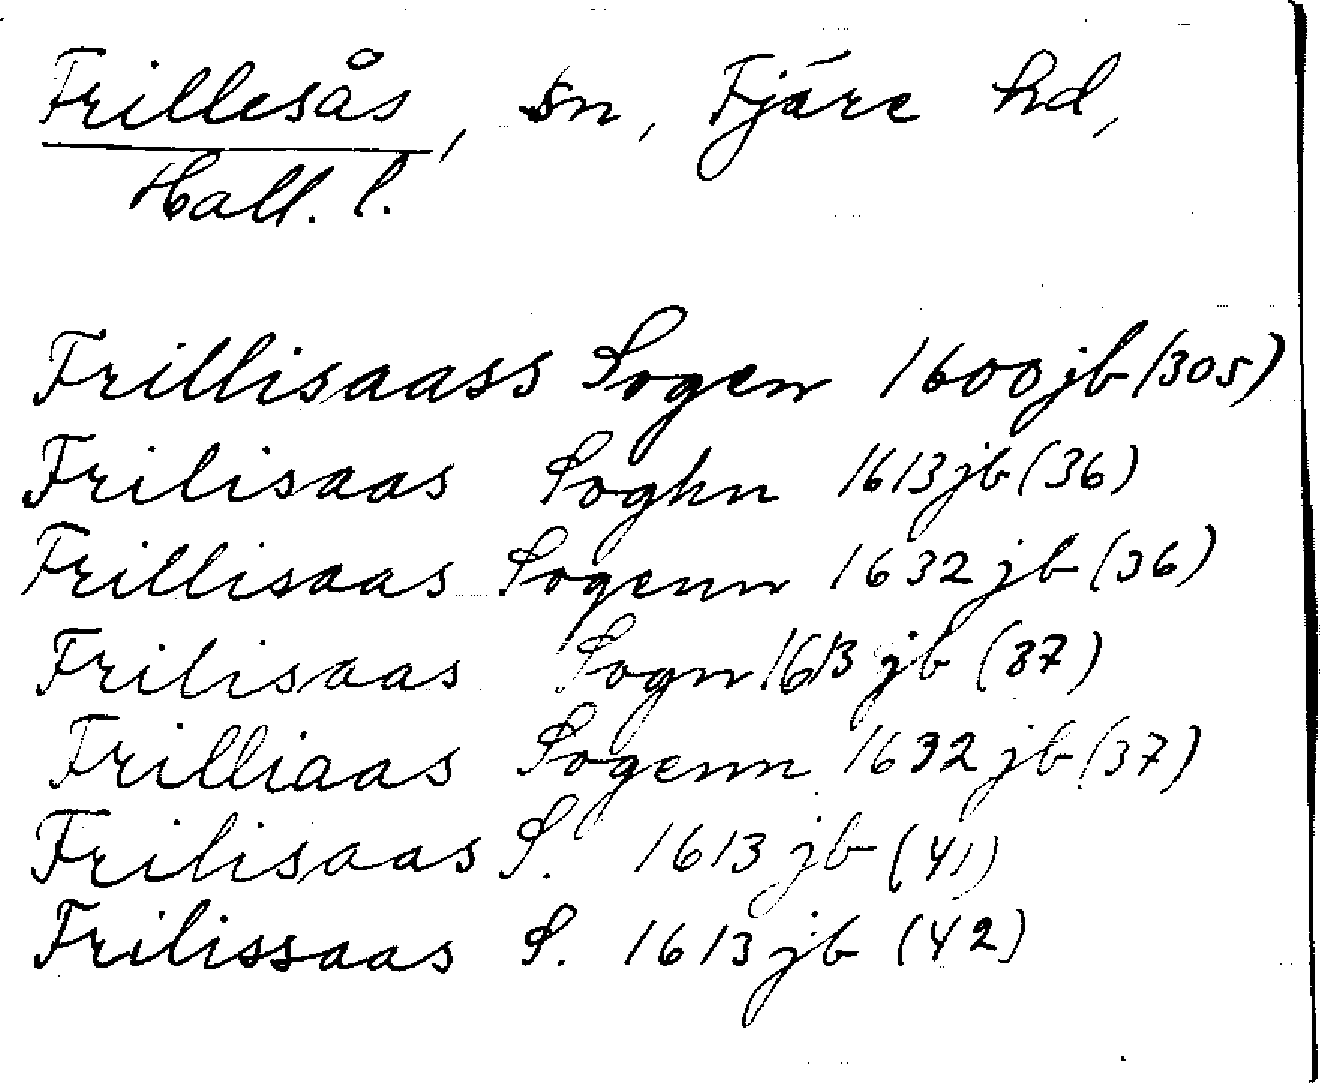 Frillesås, sn, Fjäre hd,
Hall. l.
Frillisaass Sogen 1600 jb (305)
Frilisaas Soghn 1613 jb (36)
Frillisaas Sogenn 1632 jb (36)
Frilisaas Sogn 1613 jb (37)
Frilliaas Sogenn 1632 jb (37)
Frilisaas S. 1613 jb (41)
Frilissaas S. 1613 jb (42)